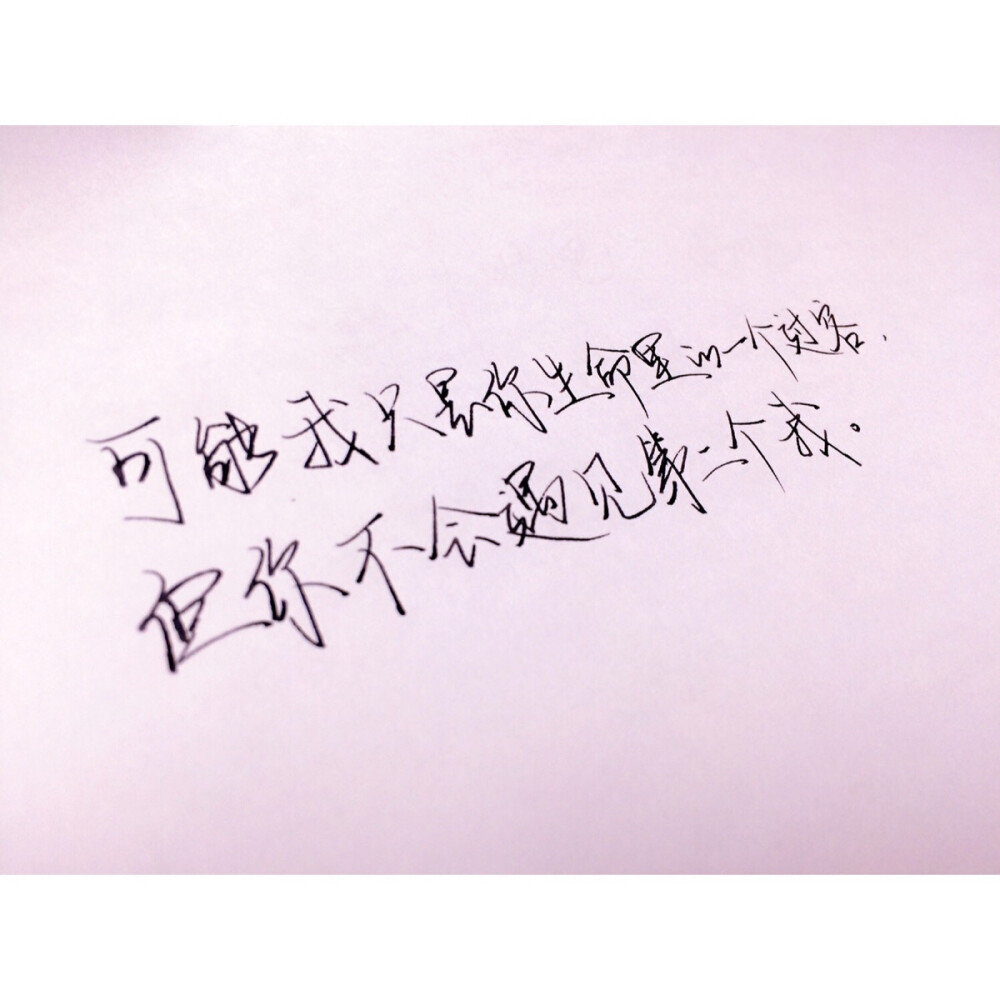 可能我只是你生命里的一个过客.
但你不会遇见第二个我。